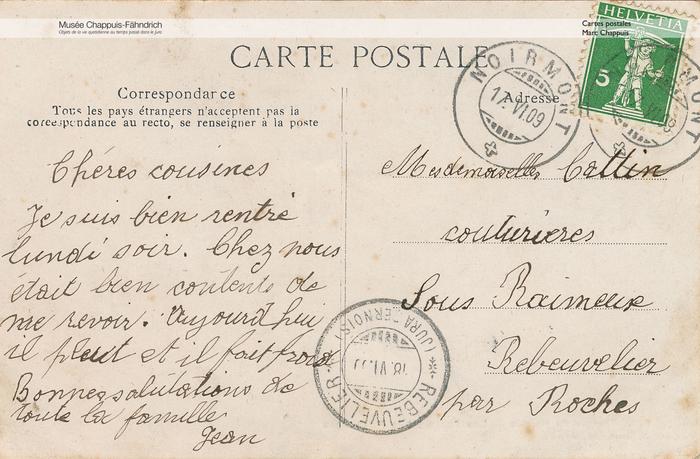 Musée Chappuis-Fähndrich
Objets de la vie quotidienne au temps passé dans le Jura
Cartes postales
Marc Chappuis
CARTE POSTALE
HELVETIA
5
NOIRMONT
17.VI.09
Correspondance
Tous les pays étrangers n'acceptent pas la
correspondance au recto, se renseigner à la poste
Adresse
Chéres cousines
Je suis bien rentré
lundi soir. Chez nous
était bien contents de
me revoir. Aujourd'hui
il pleut et il fait froid
Bonnes salutations de
toute la famille
Jean
Mesdemoiselles Cattin
couturières
Sous Raimeux
Rebeuvelier
par Roches
REBEUVELIER
(JURA BERNOIS)
18.VI.09